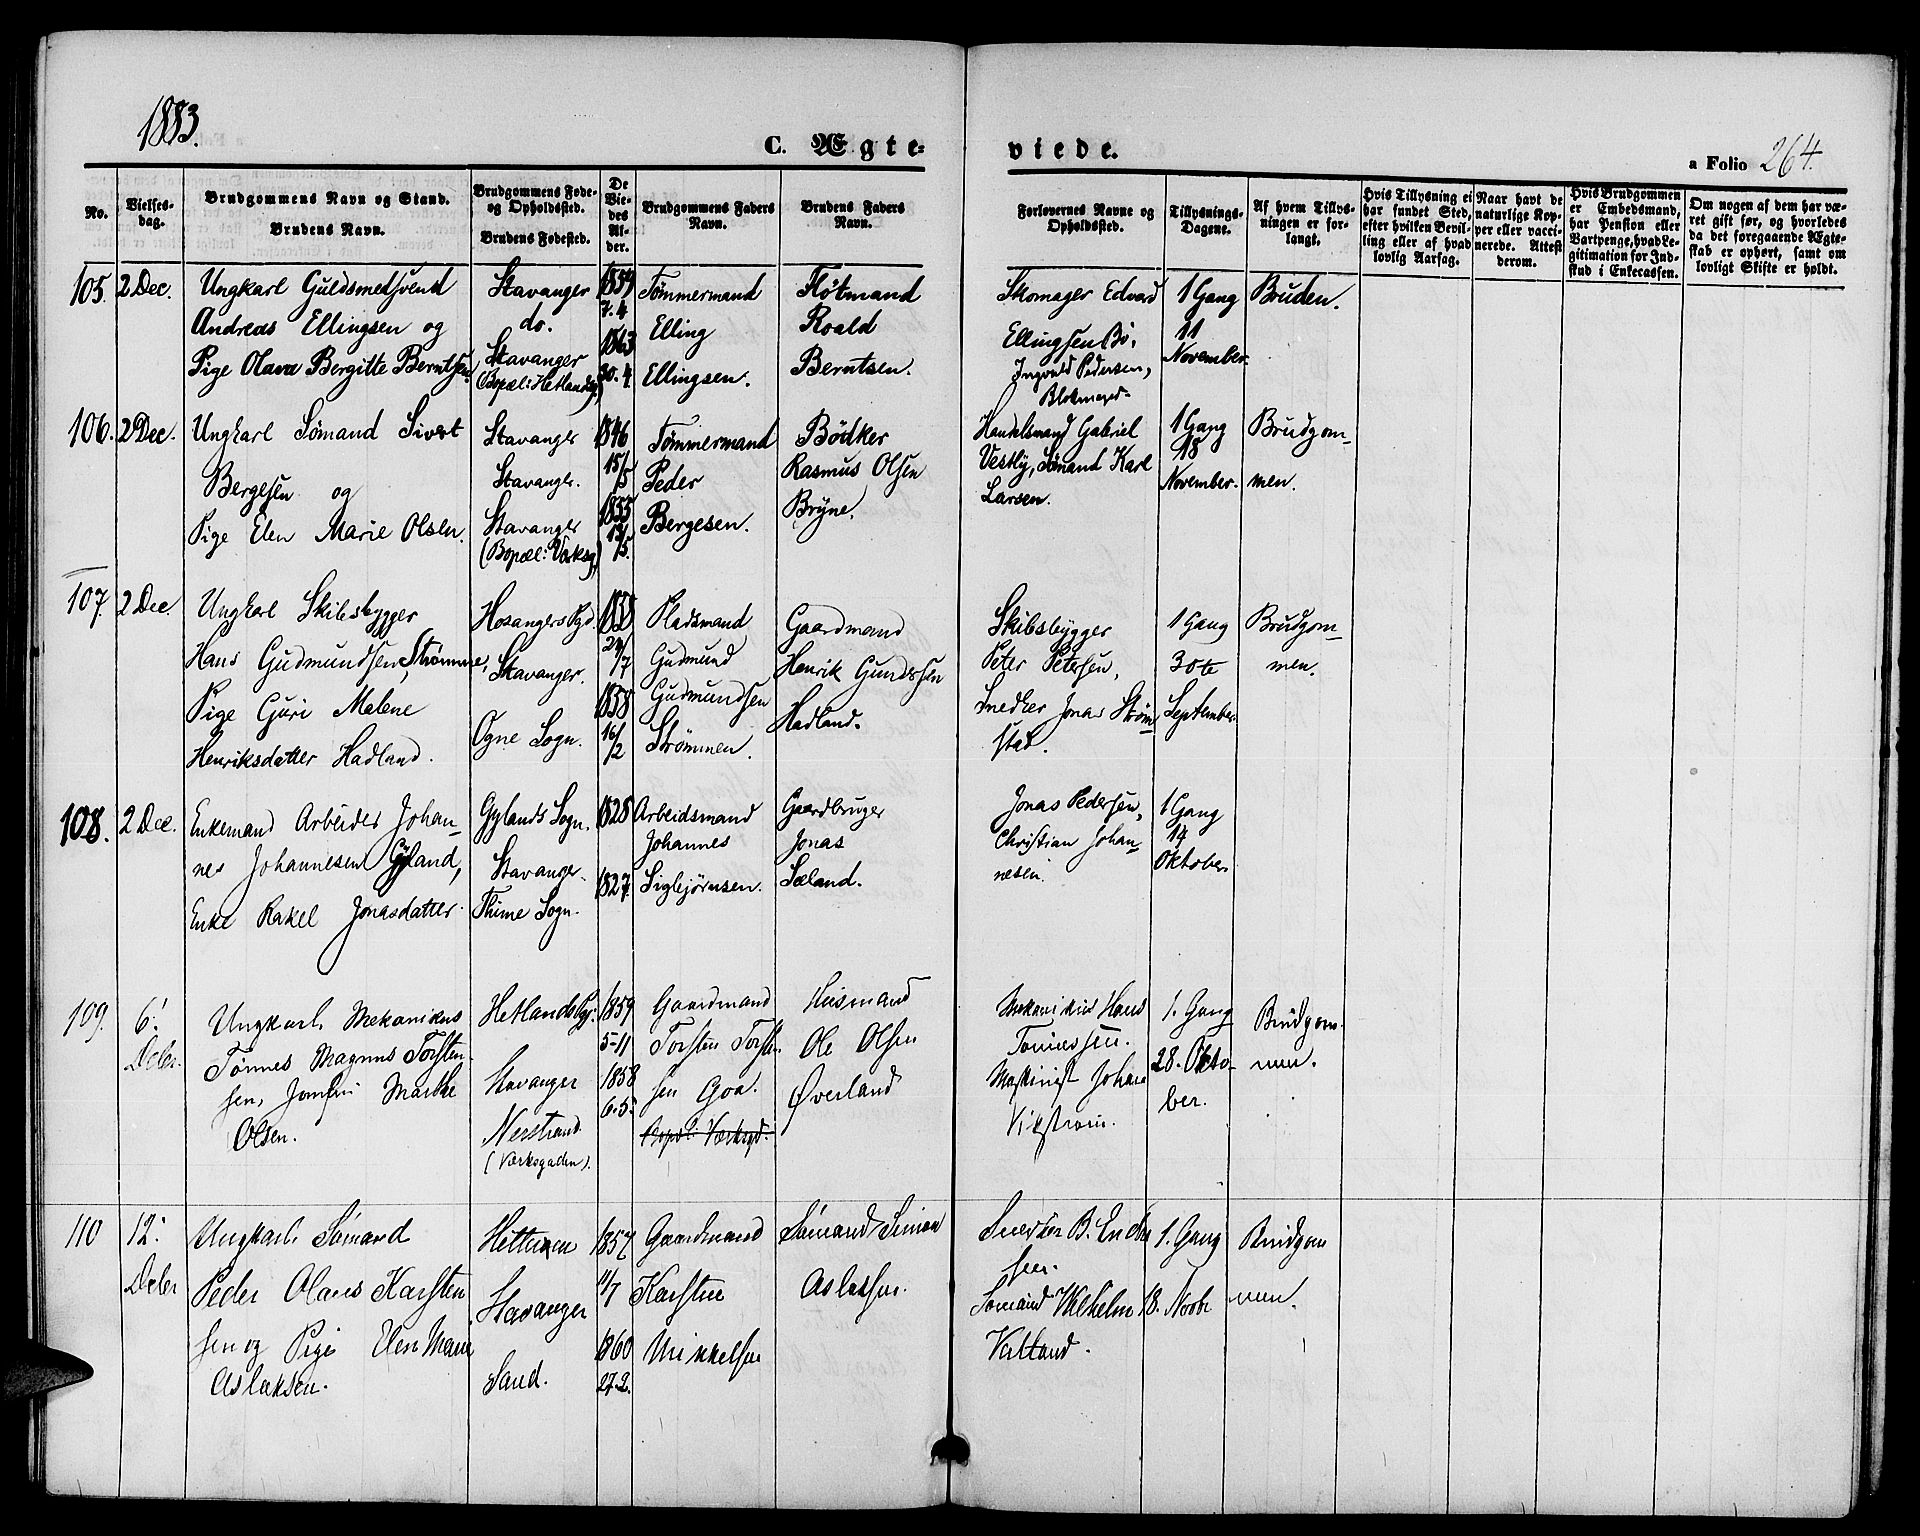 1883.
C. Ægte-
viede.
a Folio 264.
No.
Vielses-
dag.
Brudgommens Navn og Stand.
Brudens Navn.
Brudgommens Føde-
og Opholdssted.
Brudens Fødested.
De
Vie-
des
Al-
der.
Brudgommens Faders
Navn.
Brudens Faders
Navn.
Forlovernes Navne og
Opholdssted.
Tillysnings-
Dagene.
Af hvem Tillys-
ningen er for-
langt.
Hvis Tillysning ei
har fundet Sted,
efter hvilken Bevil-
ling eller af hvad
lovlig Aarsag.
Naar havt de
naturlige Kop-
per eller vacci-
nerede. Attest
derom.
Hvis Brudgommen
er Embedsmand,
har Pension eller
Vartpenge, hvad Le-
gitimation for Ind-
skud i Enkecassen.
Om nogen af dem har væ-
ret gift før, og hvorledes
da det foregaaende Ægte-
skab er ophørt, samt om
lovligt Skifte er holdt.
105.
2 Dec.
Ungkarl Guldsmedsvend
Andreas Ellingsen og
Pige Olava Bergitte Berntsen
Stavanger
do.
Stavanger
(Bopæl: Hetlandsg.)
1859
7.4
1863
30.4
Tømmermand
Elling
Ellingsen.
Fløtmand
Roald
Berntsen.
Skomager Edvard
Ellingsen Bø,
Ingvald Pedersen,
Blokmager
1 Gang
11
November.
Bruden.
106.
2 Dec.
Ungkarl Sømand Sivert
Bergesen og
Pige Elen Marie Olsen.
Stavanger
Stavanger.
Stavanger
(Bopæl: Værksg.)
1846
15/5
1855
13/5.
Tømmermand
Peder
Bergesen.
Bødker
Rasmus Olsen
Bryne.
Handelsmand Gabriel
Vestly, Sømand Karl
Larsen.
1 Gang
18
November.
Brudgom-
men.
107.
2 Dec.
Ungkarl Skibsbygger
Hans Gudmundsen Strømme,
Pige Guri Malene
Henriksdatter Hadland.
Hosangers Pgd
Stavanger.
Ogne Sogn.
24/7
1858
16/2
Pladsmand
Gudmund
Gudmundsen
Strømmen.
Gaardmand
Henrik Gundssen
Hadland.
Skibsbygger
Peter Petersen,
Snedker Jonas Strøm-
stad.
1 Gang
30te
September.
Brudgom-
men.
108.
2 Dec.
Enkemand Arbeider Johan-
nes Johannesen Gyland,
Enke Rakel Jonasdatter.
Gylands Sogn.
Stavanger.
Thime Sogn.
1828
1827.
Arbeidsmand
Johannes
Sigbjørnsen.
Gaardbruger
Jonas
Sæland.
Jonas Pedersen,
Christian Johan-
nesen.
1 Gang
14
Oktober.
109.
6'
Dcbr.
Ungkarl Mekanikus
Tønnes Magnus Torsten-
sen, Jomfru Marthe
Olsen.
Hetlands Pg.
Stavanger
Nerstrand
(Værksgaden).
1859
5-11
1858
6.5.
Gaardmand
Torsten Torsten-
sen Goa.
Bopæl: Værksgd.
Husmand
Ole Olsen
Øverland
Mekanikus Hans
Tønnessen.
Maskinist Johan
Vikstrøm.
1. Gang
28. Okto-
ber.
Brudgom-
men.
110
12'
Dcbr
Ungkarl Sømand
Peder Olaus Karsten
sen og Pige Elen Marie
Aslaksen.
Stavanger
Sand.
1857
11/7
1860
27.2.
Gaardmand
Karsten
Mikkelsen
Sømand Simon
Aslaksen.
Snedker B. Endre
sen.
Sømand Wilhelm
1. Gang
18. Novbr
Brudgom
men.